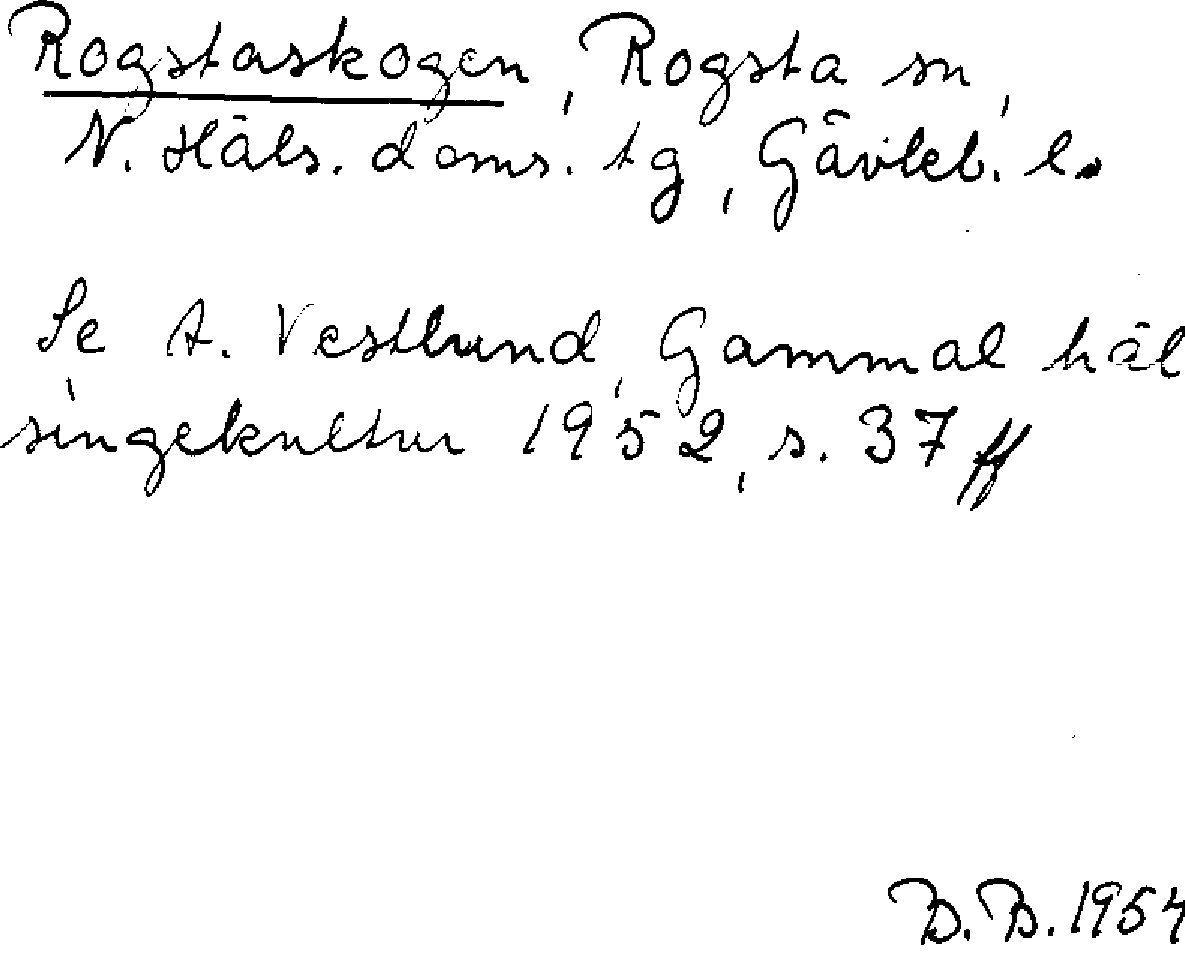 Rogstaskogen, Rogsta sn,
N. Häls. doms. tg, Gävleb. l.
Se A. Vestlund, Gammal häl
singekultur 1952, s. 37 ff
B. B. 1954